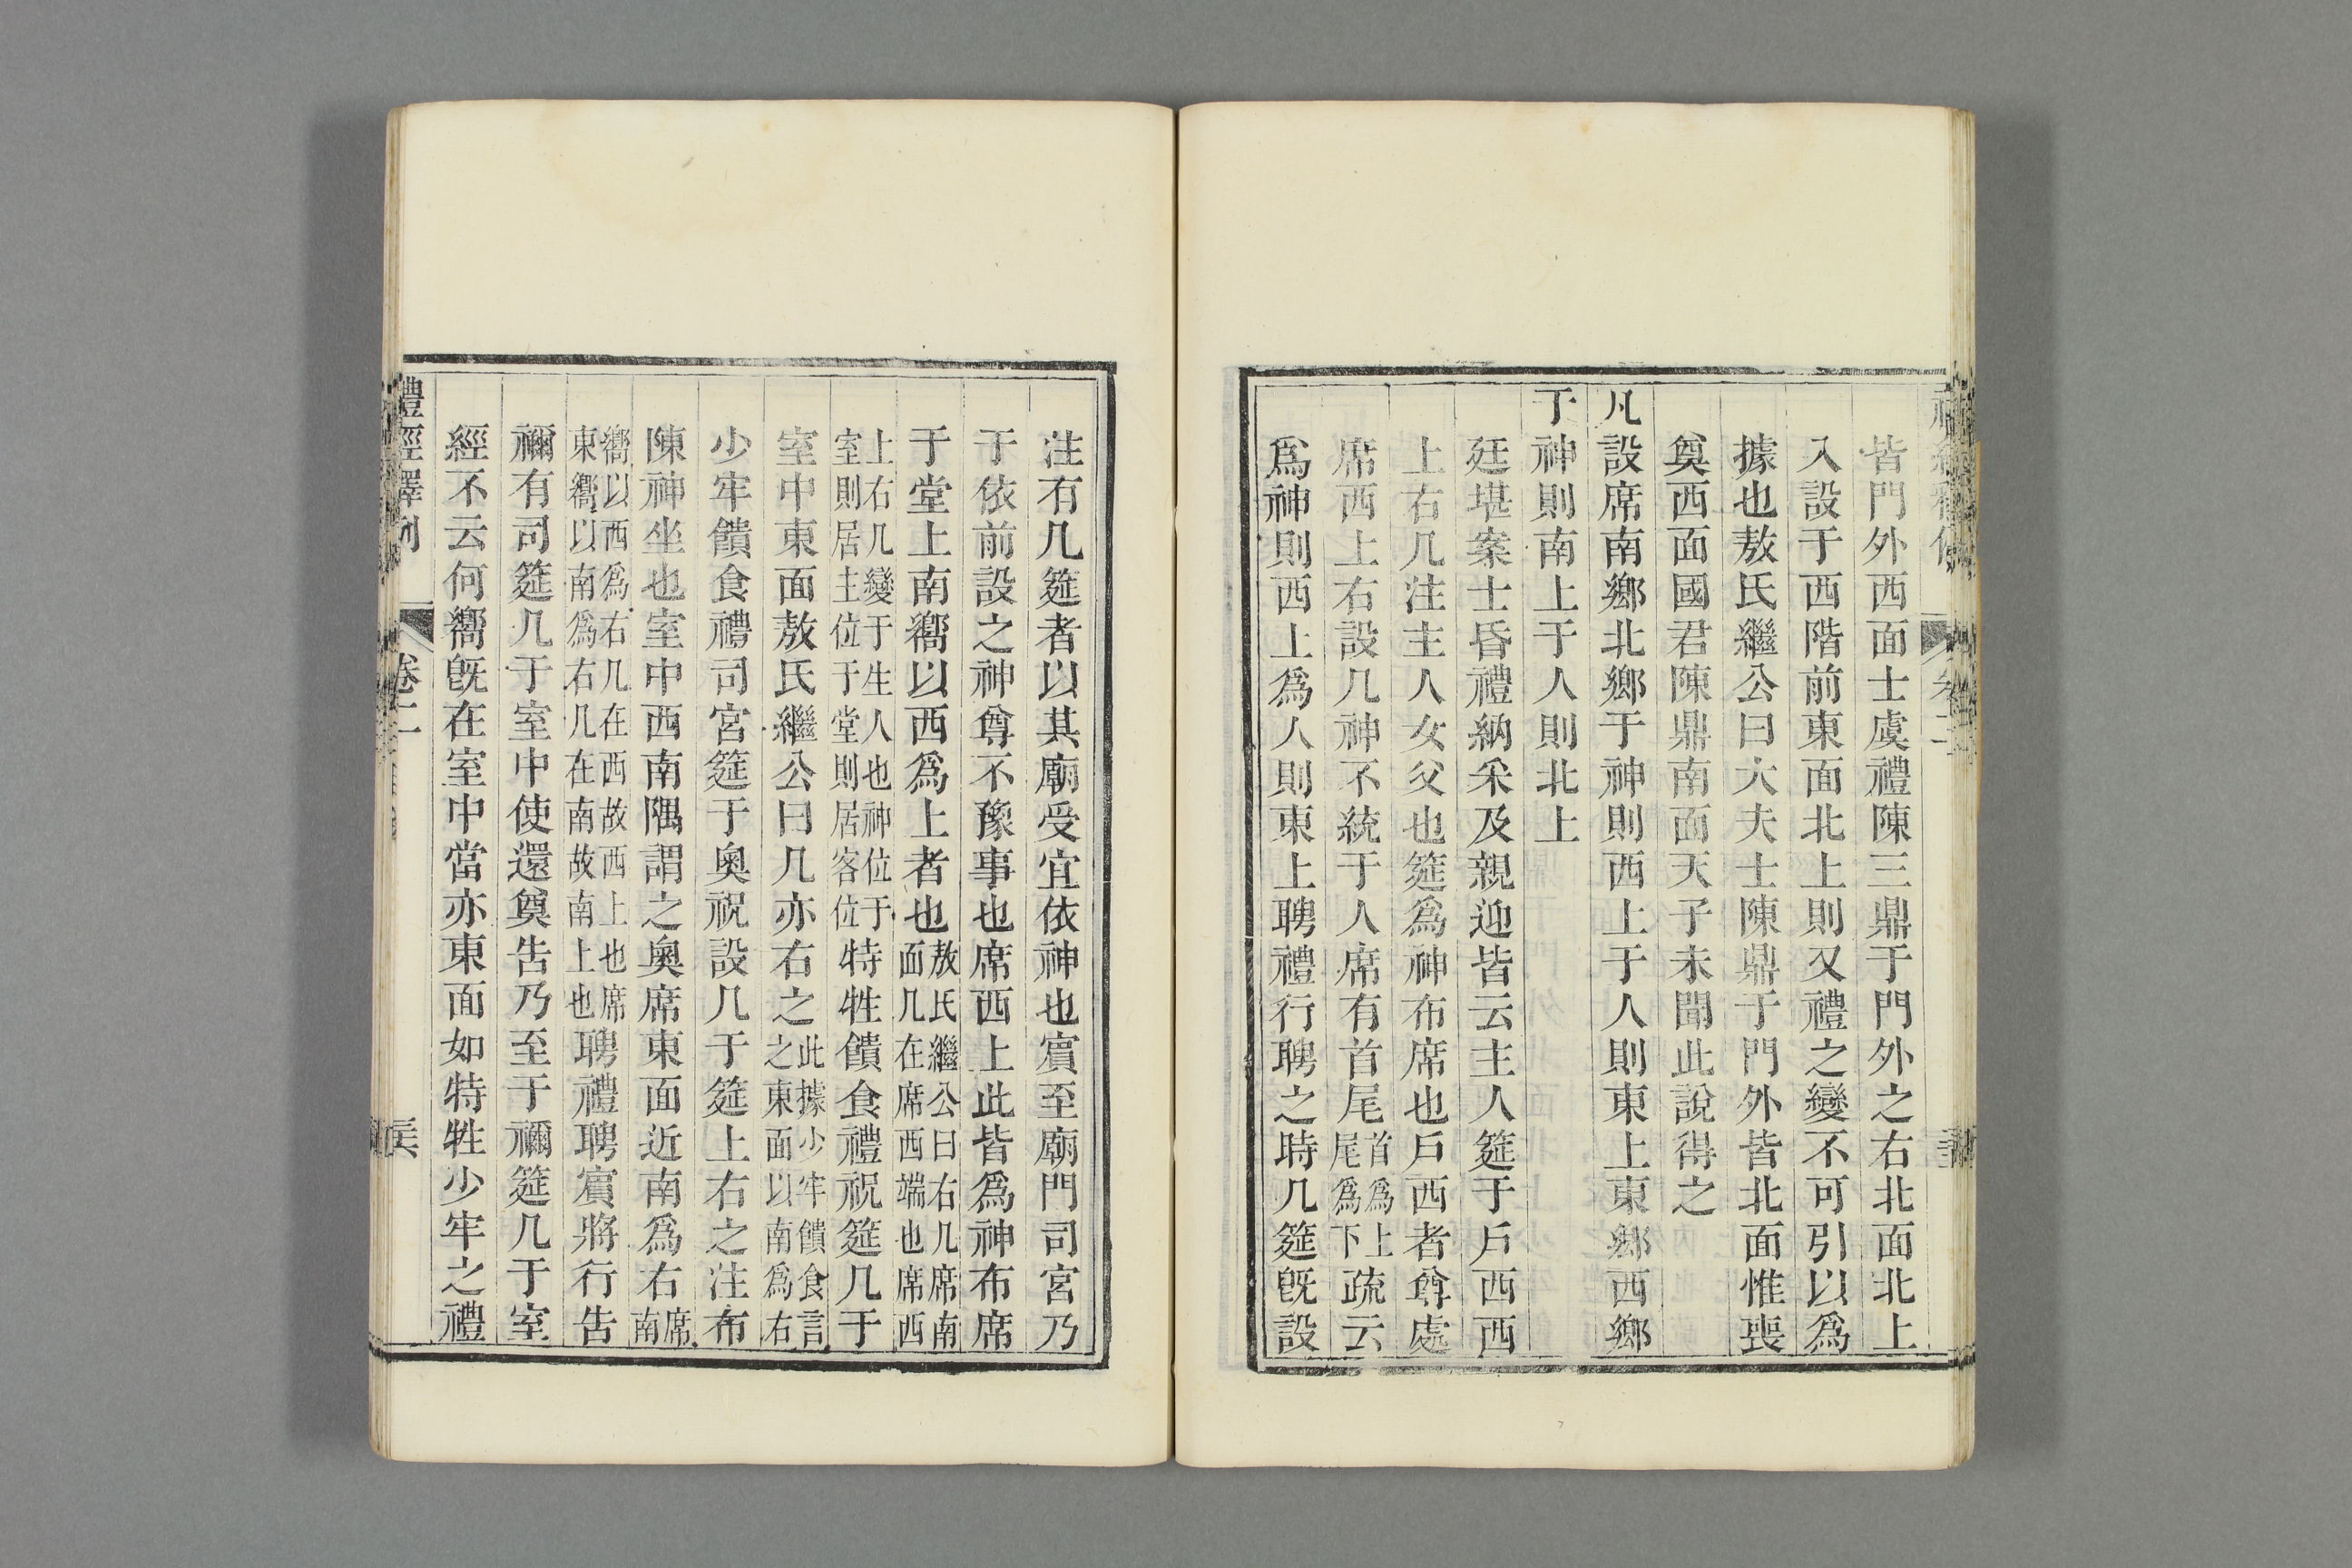 皆門外西面士虞禮陳三鼎于門外之右北面北上
入設于西階前東面北上則又禮之變不可引以爲
據也敖氏繼公曰大夫士陳鼎于門外皆北面惟喪
奠西面國君陳鼎南面天子未聞此說得之
凡設席南鄉北鄉于神則西上于人則東上東鄉西鄉
于神則南上于人則北上
廷堪案士昏禮納采及親迎皆云主人筵于戶西西
上右几注主人女父也筵爲神布席也戶西者尊處
席西上右設几神不統于人席有首尾首爲上尾爲下疏云
爲神則西上爲人則東上聘禮行聘之時几筵旣設
注有几筵者以其廟受宜依神也賓至廟門司宮乃
于依前設之神尊不豫事也席西上此皆爲神布席
于堂上南嚮以西爲上者也敖氏繼公曰右几席南面几在席西端也席西
上右几變于生人也神位于室則居主位于堂則居客位特牲饋食禮祝筵几于
室中東面敖氏繼公曰几亦右之此據少牢饋食言之東面以南爲右
少牢饋食禮司宮筵于奧祝設几于筵上右之注布
陳神坐也室中西南隅謂之奧席東面近南爲右席南
嚮以西爲右几在西故西上也席東嚮以南爲右几在南故南上也聘禮聘賓將行告
禰有司筵几于室中使還奠告乃至于禰筵几于室
經不云何嚮旣在室中當亦東面如特牲少牢之禮
禮經釋例
卷二